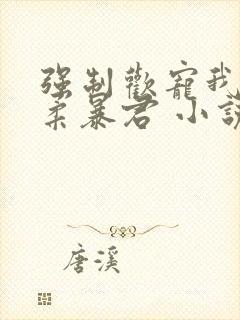 强制歡寵我
柔暴君 小說
唐溪